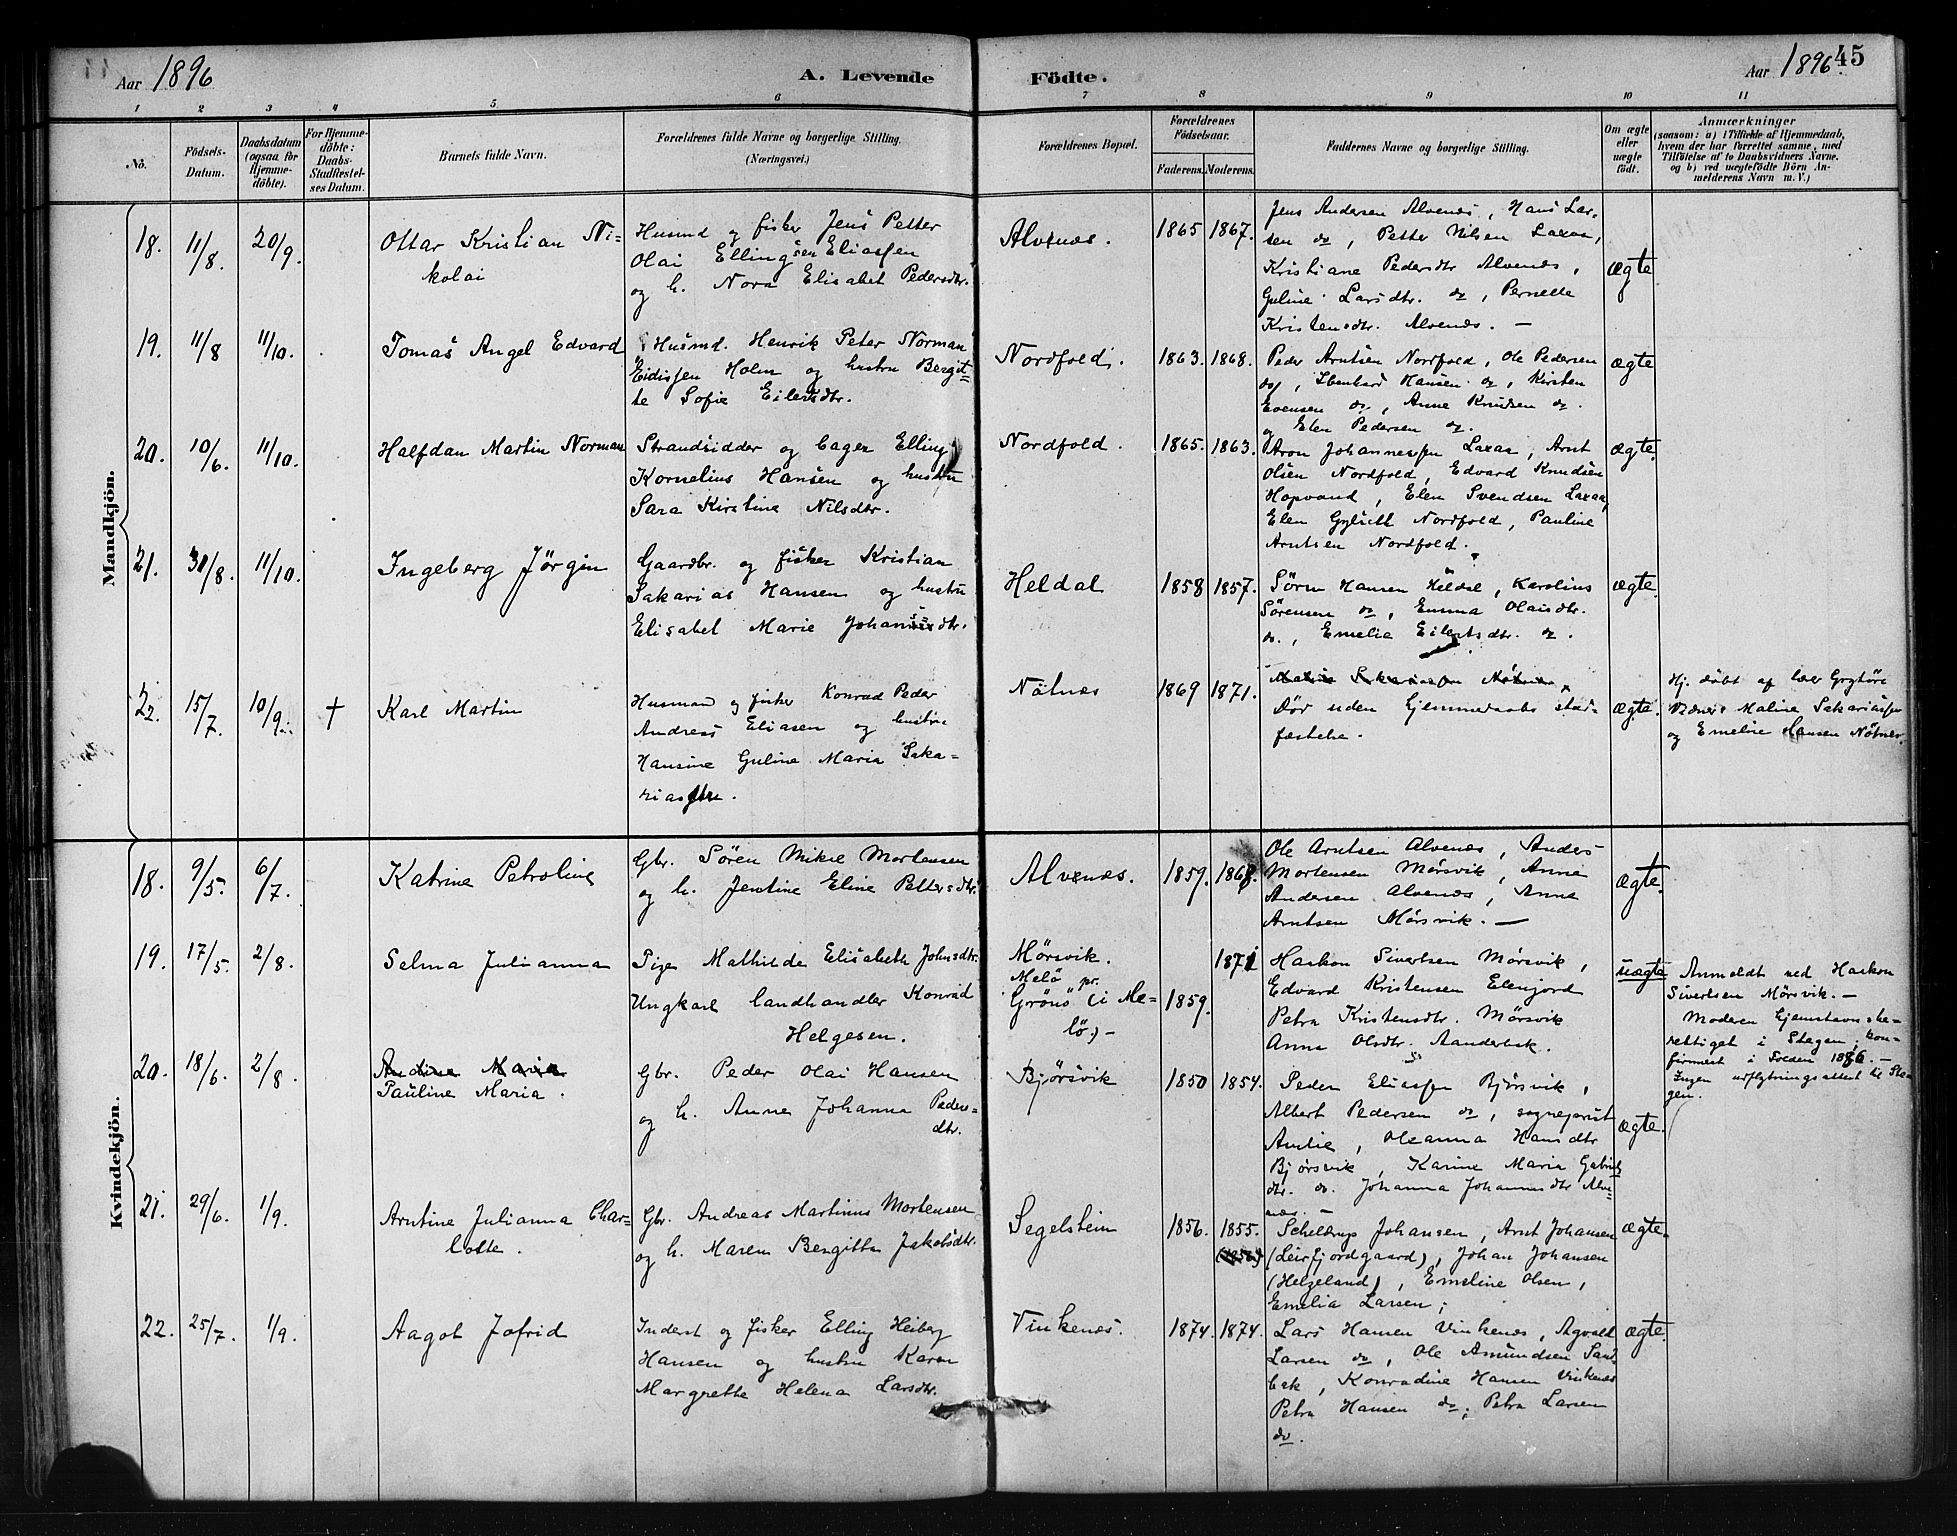 Aar 1896
A. Levende
Födte.
Aar 1896.
45
1 2 3 4 5 6 7 8 9 10 11
No.
Födsels-
Datum.
Daabsdatum
(ogsaa for
Hjemme-
döbte).
For Hjemme-
döbte:
Daabs-
Stadfæstel-
ses Datum.
Barnets fulde Navn.
Forældrenes fulde Navne og borgerlige Stilling.
(Næringsvei.)
Forældrenes Bopæl.
Forældrenes
Födselsaar.
Faderens. Moderens.
Faddernes Navne og borgerlige Stilling.
Om ægte
eller
uægte
födt.
Anmærkninger
(saasom: a) i Tilfælde af Hjemmedaab,
hvem der har forrettet samme, med
Tilföielse af to Daabsvidners Navne,
og b) ved uægtefödte Börn An-
melderens Navn m. V.)
Mandkjön.
18. 11/8. 20/9.
Ottar Kristian Ni-
kolai
Husmd og fisker Jens Petter
Olai Ellingsen Eliassen
og h. Nora Elisabet Pedersdtr.
Alvenæs.
1865 1867.
Jens Andersen Alvenæs, Hans Lar-
sen do, Petter Nilsen Laxaa,
Kristiane Pedersdtr Alvenæs,
Guline Larsdtr. do, Pernelle
Kristensdtr. Alvenæs. —
ægte
19. 11/8 11/10.
Tomas Angel Edvard
Husmd. Henrik Peter Norman
Eidissen Holm og hustru Bergit-
te Sofie Eilertsdtr.
Nordfold.
1863. 1868.
Peder Arntsen Nordfold, Ole Pedersen
do, Ebenhard Hansen do, Kirsten
Evensen do, Anne Knudsen do.
og Elen Pedersen do.
ægte
20. 10/6. 11/10.
Halfdan Martin Norman
Strandsidder og bager Elling
Kornelius Hansen og hustru
Sara Kirstine Nilsdtr.
Nordfold.
1865. 1863.
Aron Johannessen Laxaa, Arnt
Olsen Nordfold, Edvard Knudsen
Hopvand, Elen Svendsen Laxaa,
Elen Nordfold, Pauline
Arntsen Nordfold.
ægte.
21. 31/8. 11/10.
Ingeberg Jörgen
Gaardbr. og fisker Kristian
Sakarias Hansen og hustru
Elisabet Marie Johansdtr.
Heldal
1858 1857.
Sörn Hansen Heldal, Karolius
Sörensen do, Emma Olaisdtr.
do., Emelie Eilertsdtr. do.
ægte.
22. 15/7. 10/9. †
Karl Martin
Husmand og fisker Konrad Peder
Andreas Eliasen og hustru
Hansine Guline Maria Saka-
riasdtr.
Nötnæs
1869 1871.
Maline Sakariassen Nötnæs
Dör uden hjemmedaabs stad-
fæstelse.
ægte.
Hj. döbt af lær Grytöre
Vidner: Maline Sakariassen
og Emelie Hansen Nötnes.
Kvindekjön.
18. 9/5. 6/7.
Katrine Petroline
Gbr. Sören Mikal Mortensen
og h. Jentine Eline Pettersdtr.
Alvenæs.
1859. 1868.
Ole Arntsen Alvenæs, Anders
Mortensen Mörsvik, Anna
Andersen Alvenæs, Anna
Arntsen Mörsvik. —
ægte.
19. 17/5. 2/8.
Selma Julianna
Pige Mathilde Elisabeth Johnsdtr.
Ungkarl landhandler Konrad
Helgesen.
Mörsvik.
Melö pr.
Grönö (i Me-
lö.) —
1859. 1871
Haakon Sivertsen Mörsvik,
Edvard Kristensen Elenjord
Petra Kristensdtr. Mörsvik
Anna Olsdtr. Aanderbak.
uægte
Anmeldt ved Haakon
Sivertsen Mörsvik. —
Moderen hjemstavnsbe-
rettiget i Stegen, kon-
firmert i Freden 1886. —
Ingen udflytningsattest til Ste-
gen.
20. 18/6. 2/8.
Andrea Maria
Pauline Maria.
Gbr. Peder Olai Hansen
og h. Anna Johanna Peders-
dtr.
Bjørsvik
1850 1854.
Peder Eliassen Bjørsvik,
Albert Pedersen do, sogneprest
Amlie, Oleanna Hansdtr
Bjørsvik, Karine Maria Gabriels
dtr. do. Johanna Johannesdtr Alve-
næs. —
ægte.
21. 29/6. 1/9.
Arntine Julianna Char-
lotte.
Gbr. Andreas Martinus Mortensen
og h. Maren Bergitta Jakobsdtr.
Segelstein
1856. 1855.
(1856)
Scheldrup Johansen, Arnt Johansen
(Leirfjordgaard), Johan Johansen
(Helgeland), Emeline Olsen,
Emelia Larsen;
ægte.
22. 25/7. 1/9.
Aagot Jofrid
Inderst og fisker Elling Heiberg
Hansen og hustru Karen
Margrethe Helena Larsdtr.
Vinkenæs.
1874. 1874.
Lars Hansen Vinkenæs, Agvald
Larsen do, Ole Amundsen Sand-
bak, Konradine Hansen Vinkenæs
Petra Hansen do, Petra Larsen
do.
ægte.